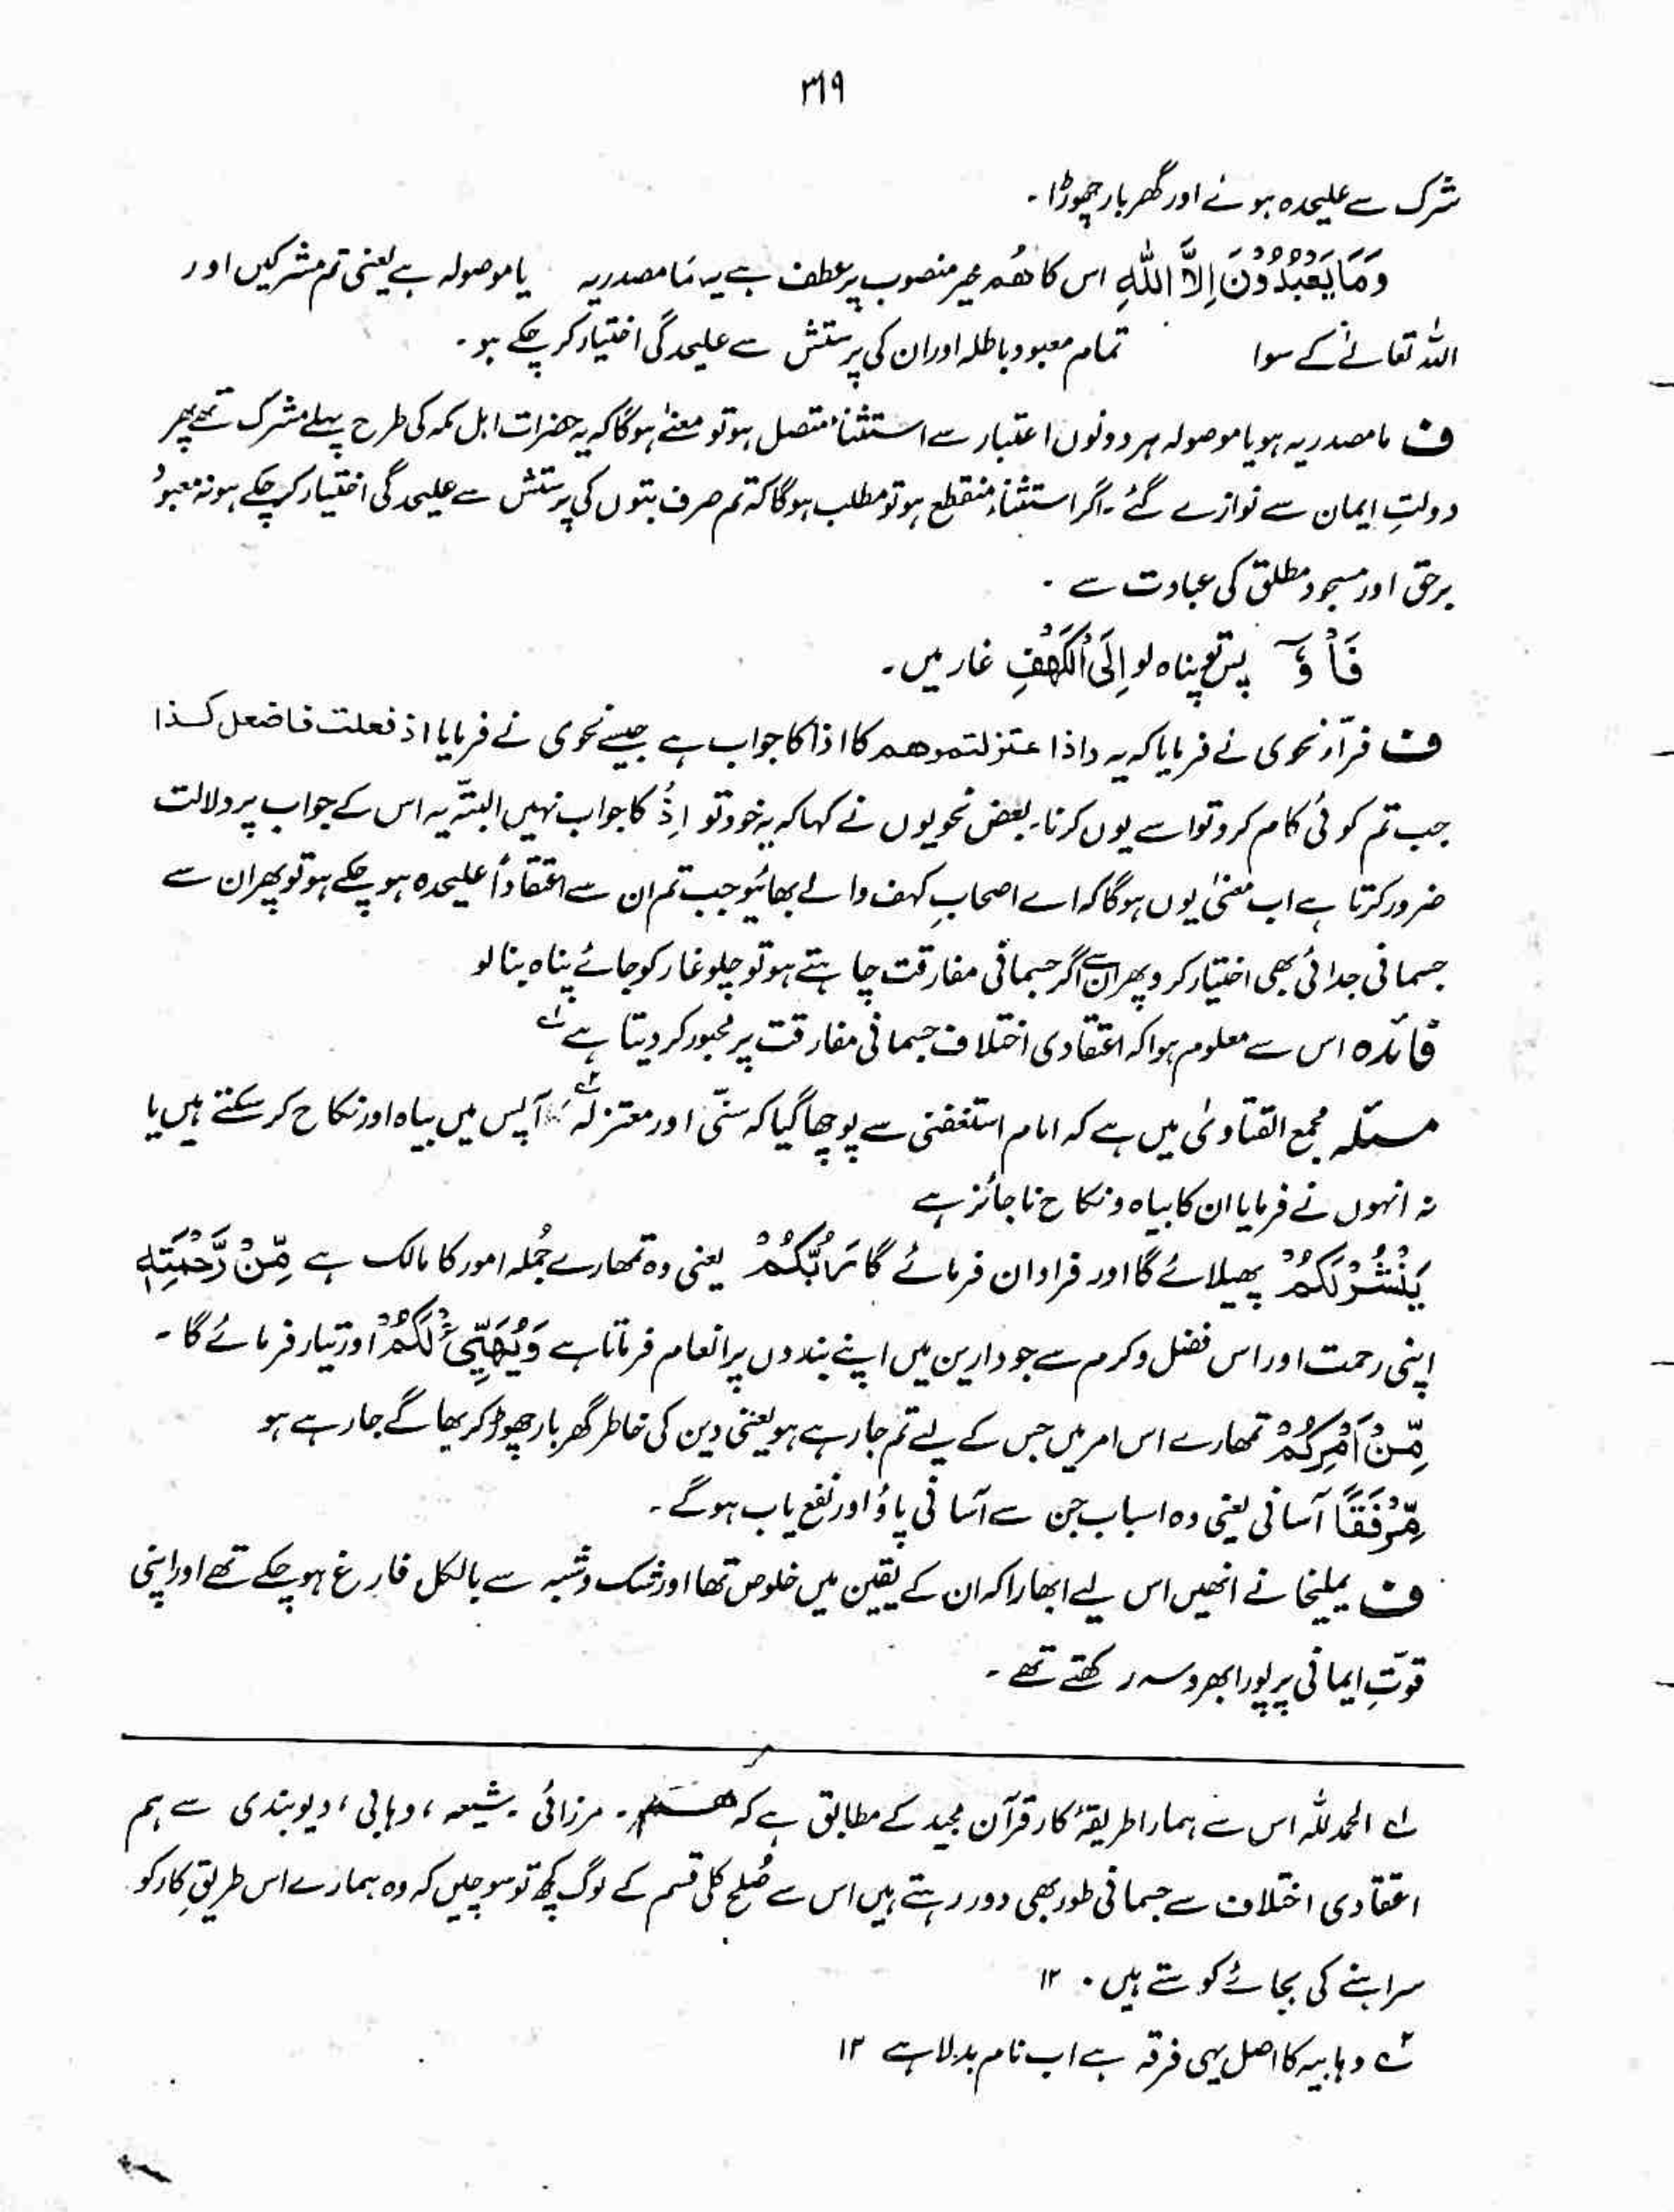 ۳۱۹
شرک سے علیحدہ ہونے اور گھر بار چھوڑا۔
وَمَا يَعْبُدُوْنَ اِلَّا اللّٰهَ اس کا ھُم ضمیر منصوب پر عطف ہے یہ مَا مصدریہ یا موصولہ ہے یعنی تم مشرکیں اور
اللہ تعالےٰ کے سوا تمام معبود باطلہ اور ان کی پرستش سے علیحدگی اختیار کر چکے ہو۔
ف ما مصدریہ ہو یا موصولہ ہر دونوں اعتبار سے استثناء متصل ہو تو معنےٰ ہوگا کہ یہ حضرات اہل مکہ کی طرح پہلے مشرک تھے پھر
دولتِ ایمان سے نوازے گئے۔ اگر استثناء منقطع ہو تو مطلب ہوگا کہ تم صرف بتوں کی پرستش سے علیحدگی اختیار کر چکے ہو نہ معبودِ
برحق اور مسجود مطلق کی عبادت سے۔
فَاْوٗٓ پس تم پناہ لو اِلَی الْکَھْفِ غار میں۔
ف فرآء نحوی نے فرمایا کہ یہ واذا عتزلتموھم کا اذا کا جواب ہے جیسے نحوی نے فرمایا اذ فعلت فافعل کذا
جب تم کوئی کام کرو تو اسے یوں کرنا۔ بعض نحویوں نے کہا کہ یہ خود تو اِذْ کا جواب نہیں البتّہ یہ اس کے جواب پر دلالت
ضرور کرتا ہے اب معنیٰ یوں ہوگا کہ اے اصحابِ کہف والے بھائیو جب تم ان سے اعتقاداً علیحدہ ہو چکے ہو تو پھر ان سے
جسمانی جدائی بھی اختیار کرو پھر ان سے اگر جسمانی مفارقت چاہتے ہو تو چلو غار کو جائے پناہ بنا لو
فائدہ اس سے معلوم ہوا کہ اعتقادی اختلاف جسمانی مفارقت پر مجبور کر دیتا ہے ۱؎
مسئلہ مجمع الفتاویٰ میں ہے کہ امام استغفنی سے پوچھا گیا کہ سنّی اور معتزلہ ۲؎ آپس میں بیاہ اور نکاح کر سکتے ہیں یا
نہ انہوں نے فرمایا ان کا بیاہ و نکاح ناجائز ہے
یَنْشُرْ لَکُمْ پھیلائے گا اور فراوان فرمائے گا رَبُّکُمْ یعنی وہ تمھارے جُملہ امور کا مالک ہے مِّنْ رَّحْمَتِہٖ
اپنی رحمت اور اس فضل و کرم سے جو دارین میں اپنے بندوں پر انعام فرماتا ہے وَیُھَیِّئْ لَکُمْ اور تیار فرمائے گا۔
مِّنْ اَمْرِکُمْ تمھارے اس امر میں جس کے لیے تم جا رہے ہو یعنی دین کی خاطر گھر بار چھوڑ کر بھاگے جا رہے ہو
مِّرْفَقًا آسانی یعنی وہ اسباب جن سے آسانی پاؤ اور نفع یاب ہوگے۔
ف یملیخا نے انھیں اس لیے ابھارا کہ ان کے یقین میں خلوص تھا اور شک و شبہ سے بالکل فارغ ہو چکے تھے اور اپنی
قوّتِ ایمانی پر پورا بھروسہ رکھتے تھے۔
۱؎ الحمد للّٰہ اس سے ہمارا طریقۂ کار قرآن مجید کے مطابق ہے کہ ہم۔ مرزائی۔ شیعہ، وہابی، دیوبندی سے ہم
اعتقادی اختلاف سے جسمانی طور بھی دور رہتے ہیں اس سے صُلح کلی قسم کے لوگ کچھ تو سوچیں کہ وہ ہمارے اس طریقِ کار کو
سراہنے کی بجائے کوستے ہیں۔ ۱۲
۲؎ وہابیہ کا اصل یہی فرقہ ہے اب نام بدلا ہے ۱۲